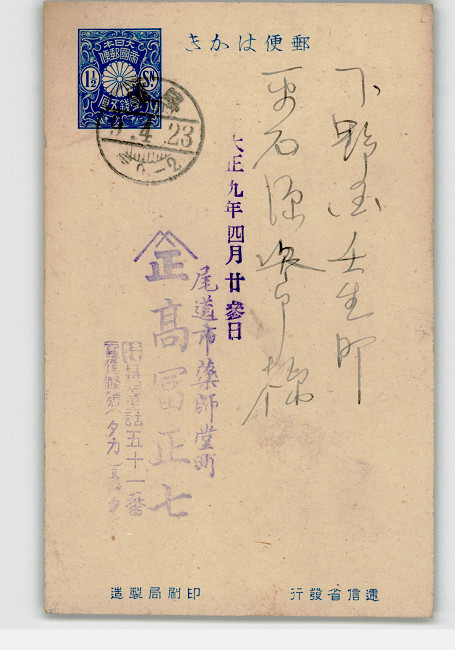 郵便はかき
大日本
帝國郵便
1½
SN
壹錢五厘
9.4.23
下野国壬生町
平石源次郎様
大正九年四月廿参日
尾道市藥師堂町
正
高冨正七
電話五十一番
遞信省發行
印刷局製造